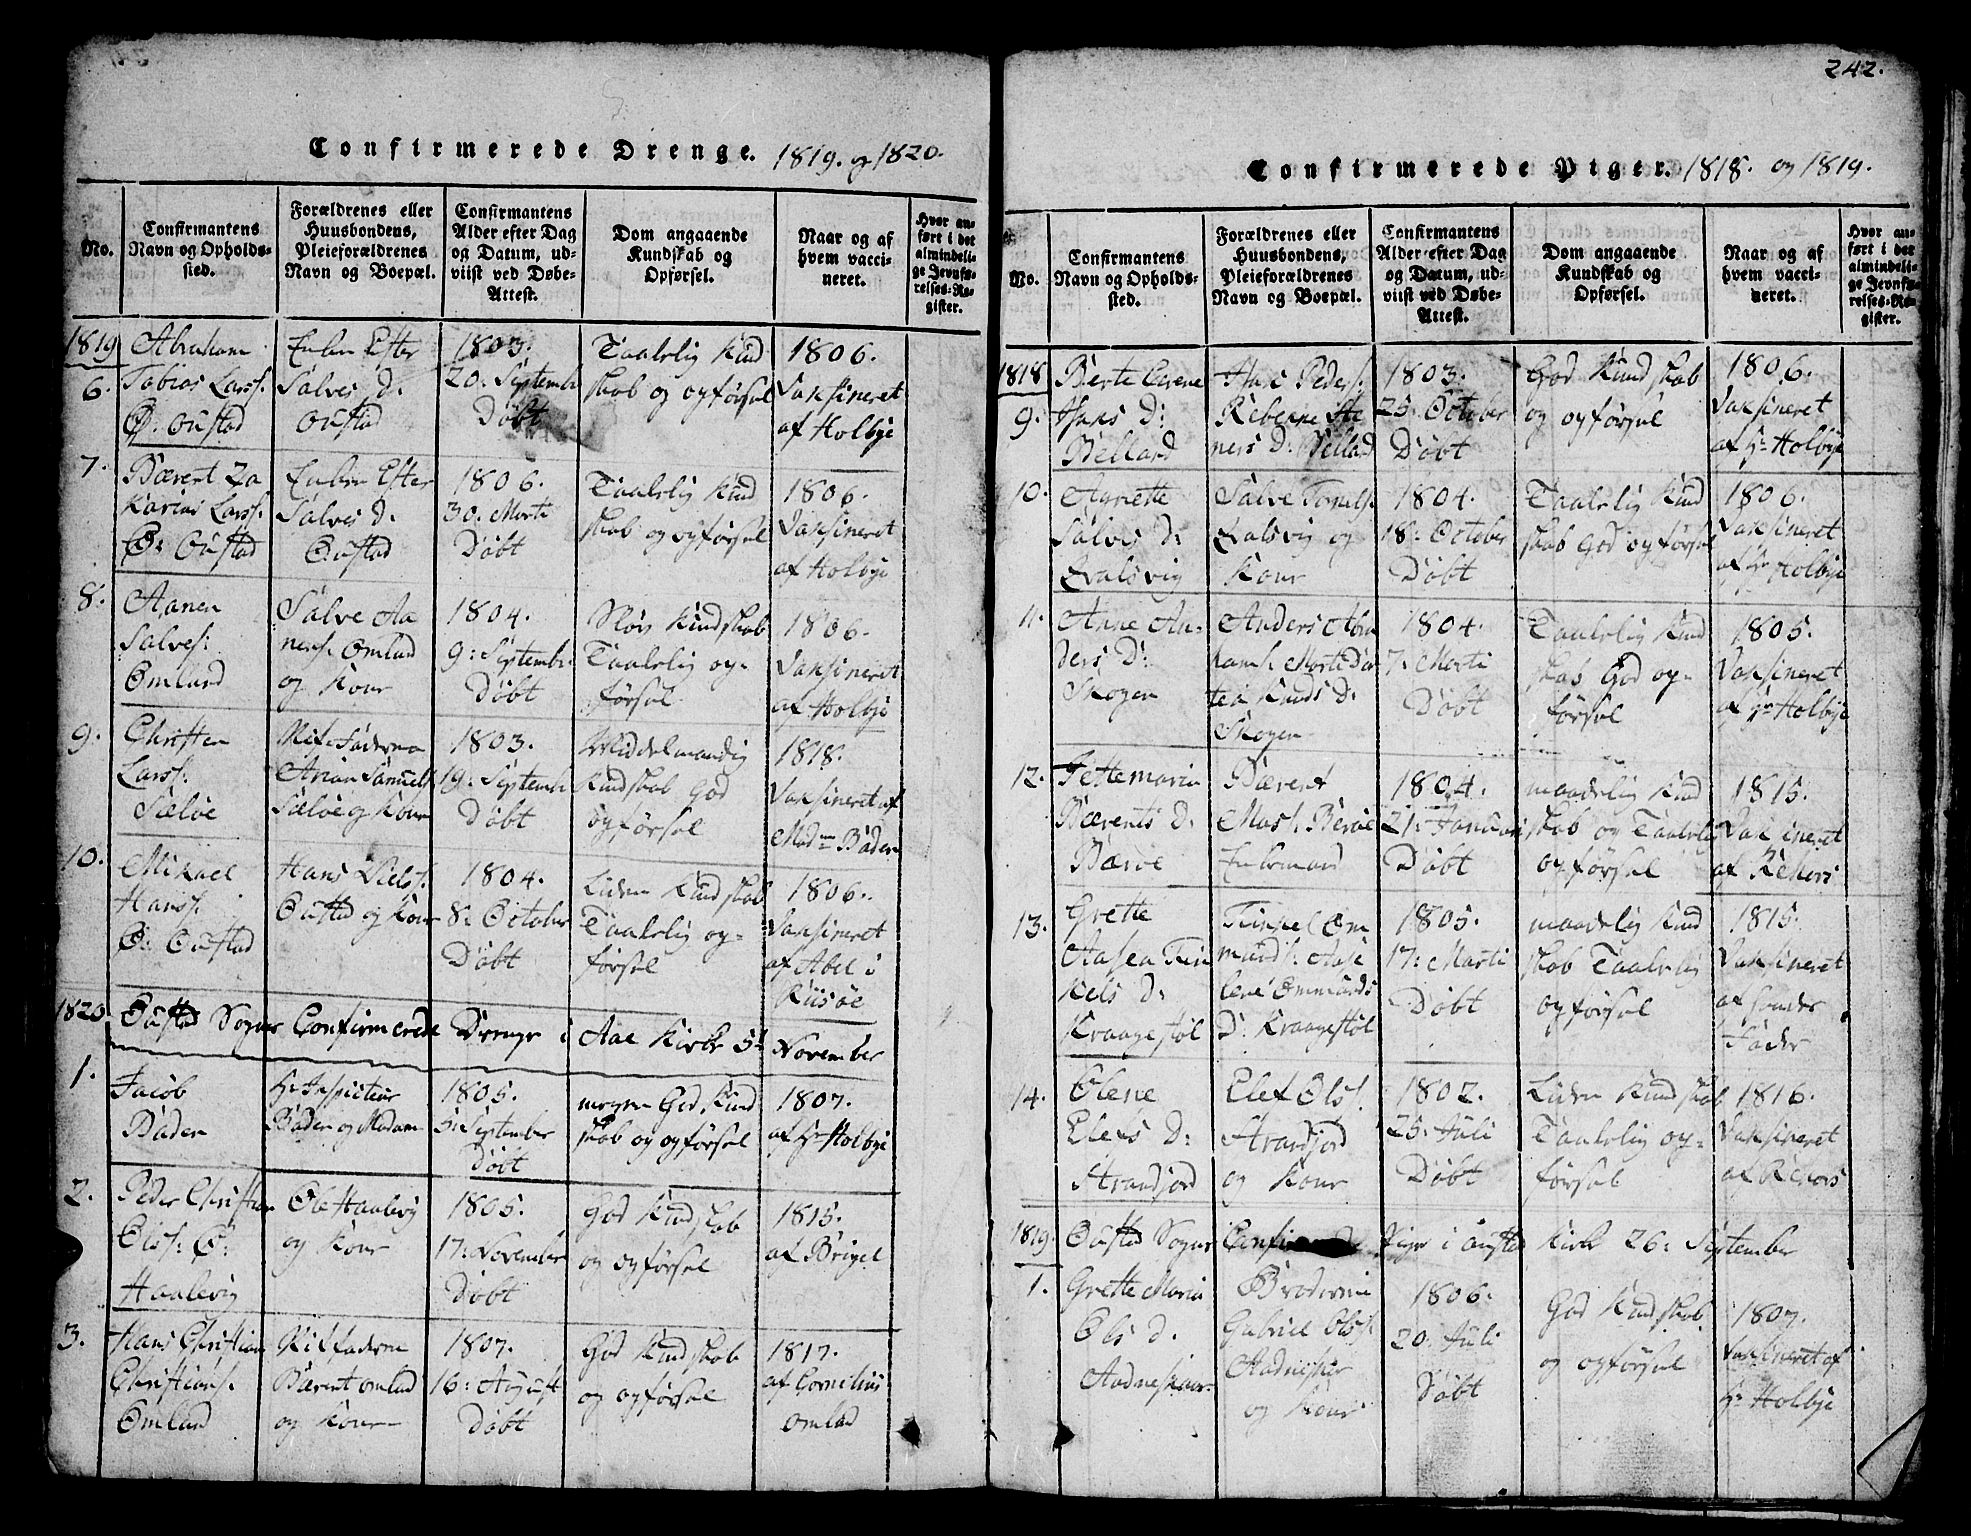 Confirmerede Drenge. 1819. og 1820.
No.
Confirmantens
Navn og Opholds-
sted.
Forældrenes eller
Huusbondens,
Pleieforældrenes
Navn og Boepæl.
Confirmantens
Alder efter Dag
og Datum, ud-
viist ved Døbe-
Attest.
Dom angaaende
Kundskab og
Opførsel.
Naar og af
hvem vacci-
neret.
Hvor an-
ført i det
almindeli-
ge Jevnfø-
relses-Re-
gister.
1819
6.
Abraham
Tobias Larss:
Ø: Oustad
Enken Ester
Salves D:
Oustad
1803.
20: Septembr
Døbt
Taalelig Kund
skab og opførsel
1806.
Vaksineret
af Holbye
7.
Bærent Za
karias Larss:
Ø: Oustad
Enken Ester
Salves D:
Oustad
1806.
30: Marti
Døbt
Taalelig Kund
skab og opførsel
1806.
Vaksineret
af Holbye
8.
Aanen
Salves:
Omland
Salve Aa
nens: Omland
og Kone
1804.
9: Septembr.
Døbt
Sløv Kundskab
Taalelig op-
førsel
1806.
Vaksineret
af Holbye
9.
Christen
Larss:
Sæløe
Stif-Faderen
Arian Samuels
Sæløe og Kone
1803.
19: Septembr
Døbt
Middelmaadig
Kundskab God
opførsel
1818.
Vaksineret af
Madm Bader
10.
Mikael
Hanss:
Ø: Oustad
Hans Niels:
Oustad og Kone
1804.
8: October
Døbt
Liden Kundskab
Taalelig op-
førsel
1806.
Vaksineret
af Abel i
Riisøe
1820 Oustad Sogns Confirmerede Drenge i Aae Kirke 5t November
1.
Jacob
Bader
Hr Inspecteur
Bader og Madam
1805.
5: September
Døbt
megen God Kund
skab og opførsel
1807.
af Hr Holbye
2.
Peder Christian
Olss: Ø:
Haalevig
Ole Haalevig
og Kone
1805.
17: November
Døbt
God Kundskab
og opførsel
1815.
af Brigel
3.
Hans Christian
Christians:
Omland
Stiffaderen
Bærent Omland
og Kone
1807.
16: August
Døbt
God Kundskab
og opførsel
1817.
af Cornelius
Omland
242.
Confirmerede Piger. 1818. og 1819.
No.
Confirmantens
Navn og Opholds-
sted.
Forældrenes eller
Huusbondens,
Pleieforældrenes
Navn og Boepæl.
Confirmantens
Alder efter Dag
og Datum, ud-
viist ved Døbe-
Attest.
Dom angaaende
Kundskab og
Opførsel.
Naar og af
hvem vacci-
neret.
Hvor an-
ført i det
almindeli-
ge Jevnfø-
relses-Re-
gister.
1818
9.
Berte Cirene
Hans D:
Bellard
Hans Peders:
Rebekke Ste
ners D: Bellard
1803.
25: October
Døbt
God Kundskab
og opførsel
1806.
Vaksineret
af Hr Holbye
10.
Agnette
Salves D:
Qvalsvig
Salve Tomes:
Qvalsvig og
Kone
1804.
18: October
Døbt
Taalelig Kund
skab God opførsel
1806.
Vaksineret
af Hr Holbye
11.
Anne An-
ders D:
Skogen
Anders Abra
hams: Marte Dor
tea Knuds D:
Skogen
1804.
7: Marti
Døbt
Taalelig Kund
skab God op-
førsel
1805.
Vaksineret
af Hr Holbye
12.
Jettemaria
Bærents D:
Barøe
Bærent
Mass: Barøe
Enkemand
1804.
21: Januari
Døbt
maadelig Kund
skab og Taalelig
opførsel
1815.
Vaksineret
af Rekers
13.
Grette
Aasea Tin
kels D:
Kraagestøl
Tinkel Om
munds: Aase
lene Ommunds
D: Kraagestøl
1805.
17: Marti
Døbt
maadelig Kund
skab Taalelig
opførsel
1815.
Vaksineret
af
Fader
14.
Olene
Elefs D:
Strandfjord
Elef Olss:
Strandfjord
og Kone
1802.
25: Juli
Døbt
Liden Kundskab
Taalelig op-
førsel
1816.
Vaksineret
af Rekers
1819. Oustad Sogns Piger i Oustad Kirke 26: September
1.
Grette Maria
Ols D.
Aadneskaar
Broderen
Gabriel Olss:
Aadneskar
og Kone
1806.
20: Juli
Døbt
God Kundskab
og opførsel
1807.
Vaksineret af
Hr Holbye